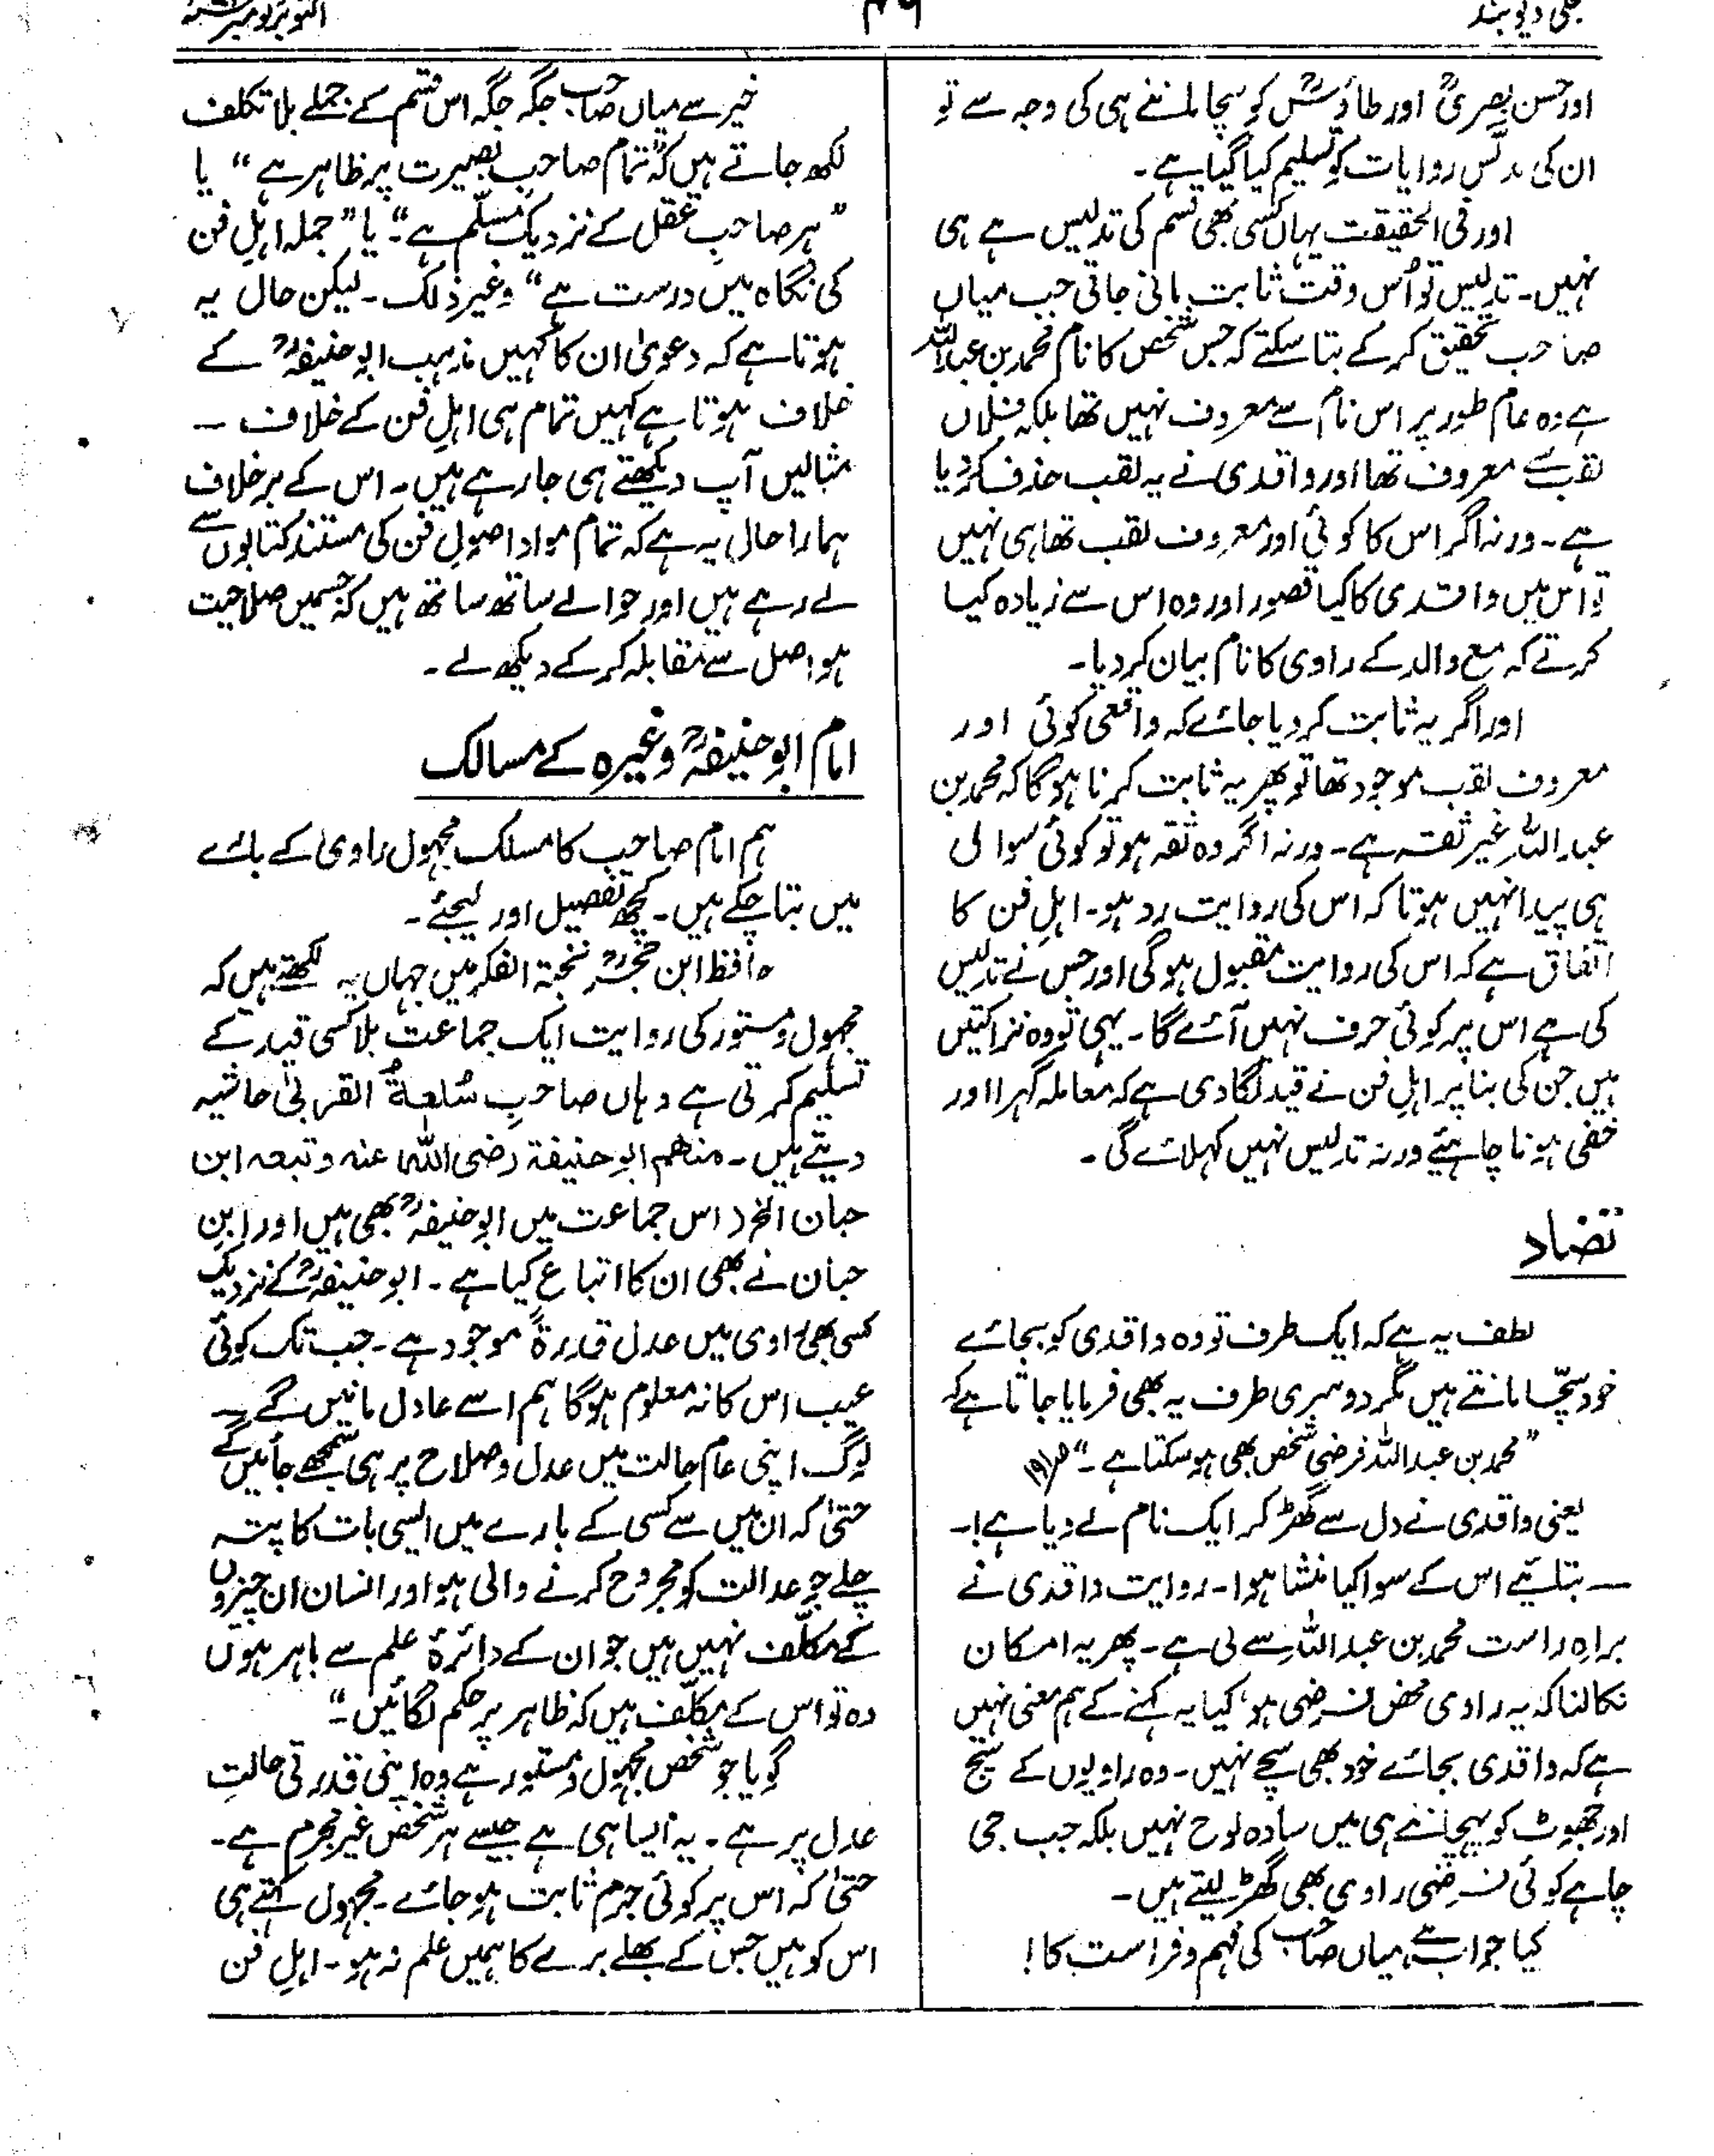 تجلی دیوبند
۴۹
اور حسن بصریؒ اور طاؤسؒ کو سچا ماننے ہی کی وجہ سے تو
ان کی مدلّس روایات کو تسلیم کیا گیا ہے۔
اور فی الحقیقت یہاں کسی بھی قسم کی تدلیس ہے ہی
نہیں۔ تدلیس تو اُس وقت ثابت مانی جاتی جب میاں
صاحب تحقیق کر کے بتا سکتے کہ جس شخص کا نام محمد بن عبداللہ
ہے وہ عام طور پر اس نام سے معروف نہیں تھا بلکہ فلاں
لقب سے معروف تھا اور واقدی نے یہ لقب حذف کر دیا
ہے۔ ورنہ اگر اس کا کوئی اور معروف لقب تھا ہی نہیں
تو اس میں واقدی کا کیا قصور اور وہ اس سے زیادہ کیا
کرتے کہ مع والد کے راوی کا نام بیان کر دیا۔
اور اگر یہ ثابت کر دیا جائے کہ واقعی کوئی اور
معروف لقب موجود تھا تو پھر یہ ثابت کرنا ہوگا کہ محمد بن
عبداللہ غیر ثقہ ہے۔ ورنہ اگر وہ ثقہ ہو تو کوئی سوال
ہی پیدا نہیں ہوتا کہ اس کی روایت رد ہو۔ اہلِ فن کا
اتفاق ہے کہ اس کی روایت مقبول ہوگی اور جس نے تدلیس
کی ہے اس پر کوئی حرف نہیں آئے گا۔ یہی تو وہ نزاکتیں
ہیں جن کی بنا پر اہلِ فن نے قید لگا دی ہے کہ معاملہ گہرا اور
خفی ہونا چاہیئے ورنہ تدلیس نہیں کہلائے گی۔
تضاد
لطف یہ ہے کہ ایک طرف تو وہ واقدی کو بجائے
خود سچّا مانتے ہیں مگر دوسری طرف یہ بھی فرمایا جاتا ہے کہ
"محمد بن عبداللہ فرضی شخص بھی ہو سکتا ہے۔" ص۱۹
یعنی واقدی نے دل سے گھڑ کر ایک نام لے دیا ہے!۔
— بتلائیے اس کے سوا کیا منشا ہوا۔ روایت واقدی نے
براہِ راست محمد بن عبداللہ سے لی ہے۔ پھر یہ امکان
نکالنا کہ یہ راوی محض فرضی ہو، کیا یہ کہنے کے ہم معنی نہیں
ہے کہ واقدی بجائے خود بھی سچے نہیں۔ وہ راویوں کے سچ
اور جھوٹ کو پہچاننے ہی میں سادہ لوح نہیں بلکہ جب جی
چاہے کوئی فرضی راوی بھی گھڑ لیتے ہیں۔
کیا جواب ہے میاں صاحب کی فہم و فراست کا!
خیر سے میاں صاحب جگہ جگہ اس قسم کے جملے بلا تکلف
لکھ جاتے ہیں کہ "تمام صاحبِ بصیرت پر ظاہر ہے" یا
"ہر صاحبِ عقل کے نزدیک مسلّم ہے۔" یا "جملہ اہلِ فن
کی نگاہ میں درست ہے" وغیر ذٰلک۔ لیکن حال یہ
ہوتا ہے کہ دعویٰ ان کا کہیں مذہب ابو حنیفہؒ کے
خلاف ہوتا ہے کہیں تمام ہی اہلِ فن کے خلاف —
مثالیں آپ دیکھتے ہی جا رہے ہیں۔ اس کے برخلاف
ہمارا حال یہ ہے کہ تمام مواد اصولِ فن کی مستند کتابوں سے
لے رہے ہیں اور حوالے ساتھ ساتھ ہیں کہ جسمیں صلاحیت
ہو اصل سے مقابلہ کر کے دیکھ لے۔
امام ابو حنیفہؒ وغیرہ کے مسالک
ہم امام صاحب کا مسلک مجہول راوی کے بارے
میں بتا چکے ہیں۔ کچھ تفصیل اور لیجئے۔
حافظ ابن حجرؒ نخبۃ الفکر میں جہاں یہ لکھتے ہیں کہ
مجہول و مستور کی روایت ایک جماعت بلا کسی قید کے
تسلیم کرتی ہے وہاں صاحبِ سُلعۃُ القربیٰ حاشیہ
دیتے ہیں۔ منهم ابو حنیفة رضی اللہ عنہ وتبعہ ابن
حبان الخ (اس جماعت میں ابو حنیفہؒ بھی ہیں اور ابنِ
حبان نے بھی ان کا اتباع کیا ہے۔ ابو حنیفہؒ کے نزدیک
کسی بھی راوی میں عدل قدرۃً موجود ہے۔ جب تک کوئی
عیب اس کا نہ معلوم ہوگا ہم اسے عادل مانیں گے —
لوگ اپنی عام حالت میں عدل و صلاح پر ہی سمجھے جائیں گے
حتیٰ کہ ان میں سے کسی کے بارے میں ایسی بات کا پتہ
چلے جو عدالت کو مجروح کرنے والی ہو اور انسان ان چیزوں
کے مکلّف نہیں ہیں جو ان کے دائرۂ علم سے باہر ہوں
وہ تو اس کے مکلّف ہیں کہ ظاہر پر حکم لگائیں۔"
گویا جو شخص مجہول و مستور ہے وہ اپنی قدرتی حالتِ
عدل پر ہے۔ یہ ایسا ہی ہے جیسے ہر شخص غیر مجرم ہے۔
حتیٰ کہ اس پر کوئی جرم ثابت ہو جائے۔ مجہول کہتے ہی
اس کو ہیں جس کے بھلے برے کا ہمیں علم نہ ہو۔ اہلِ فن